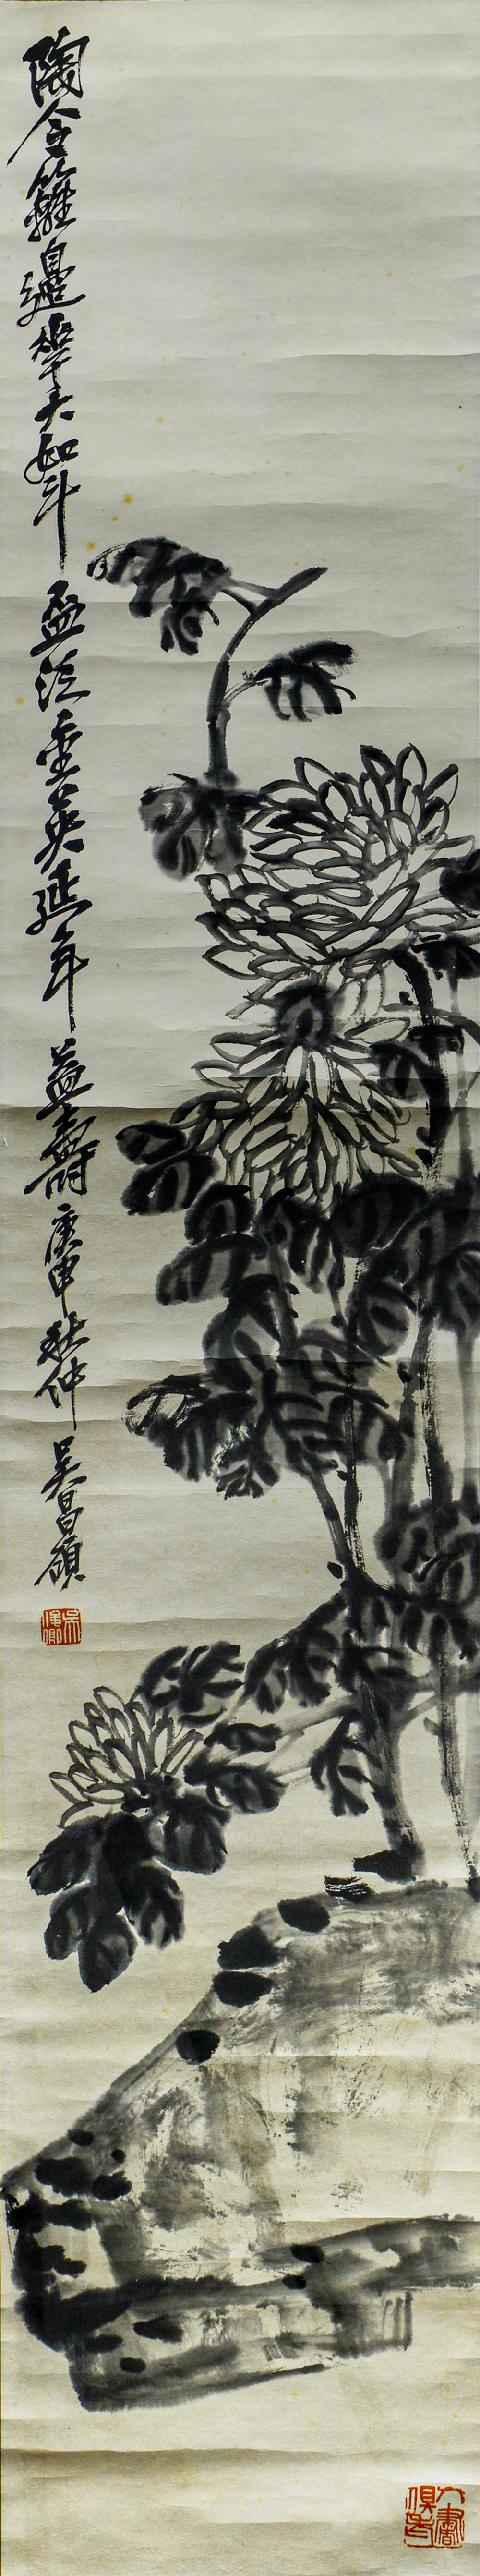 陶令籬邊華大如斗盃泛重英延年益壽庚申秋仲吳昌碩
吳俊卿
人書俱老